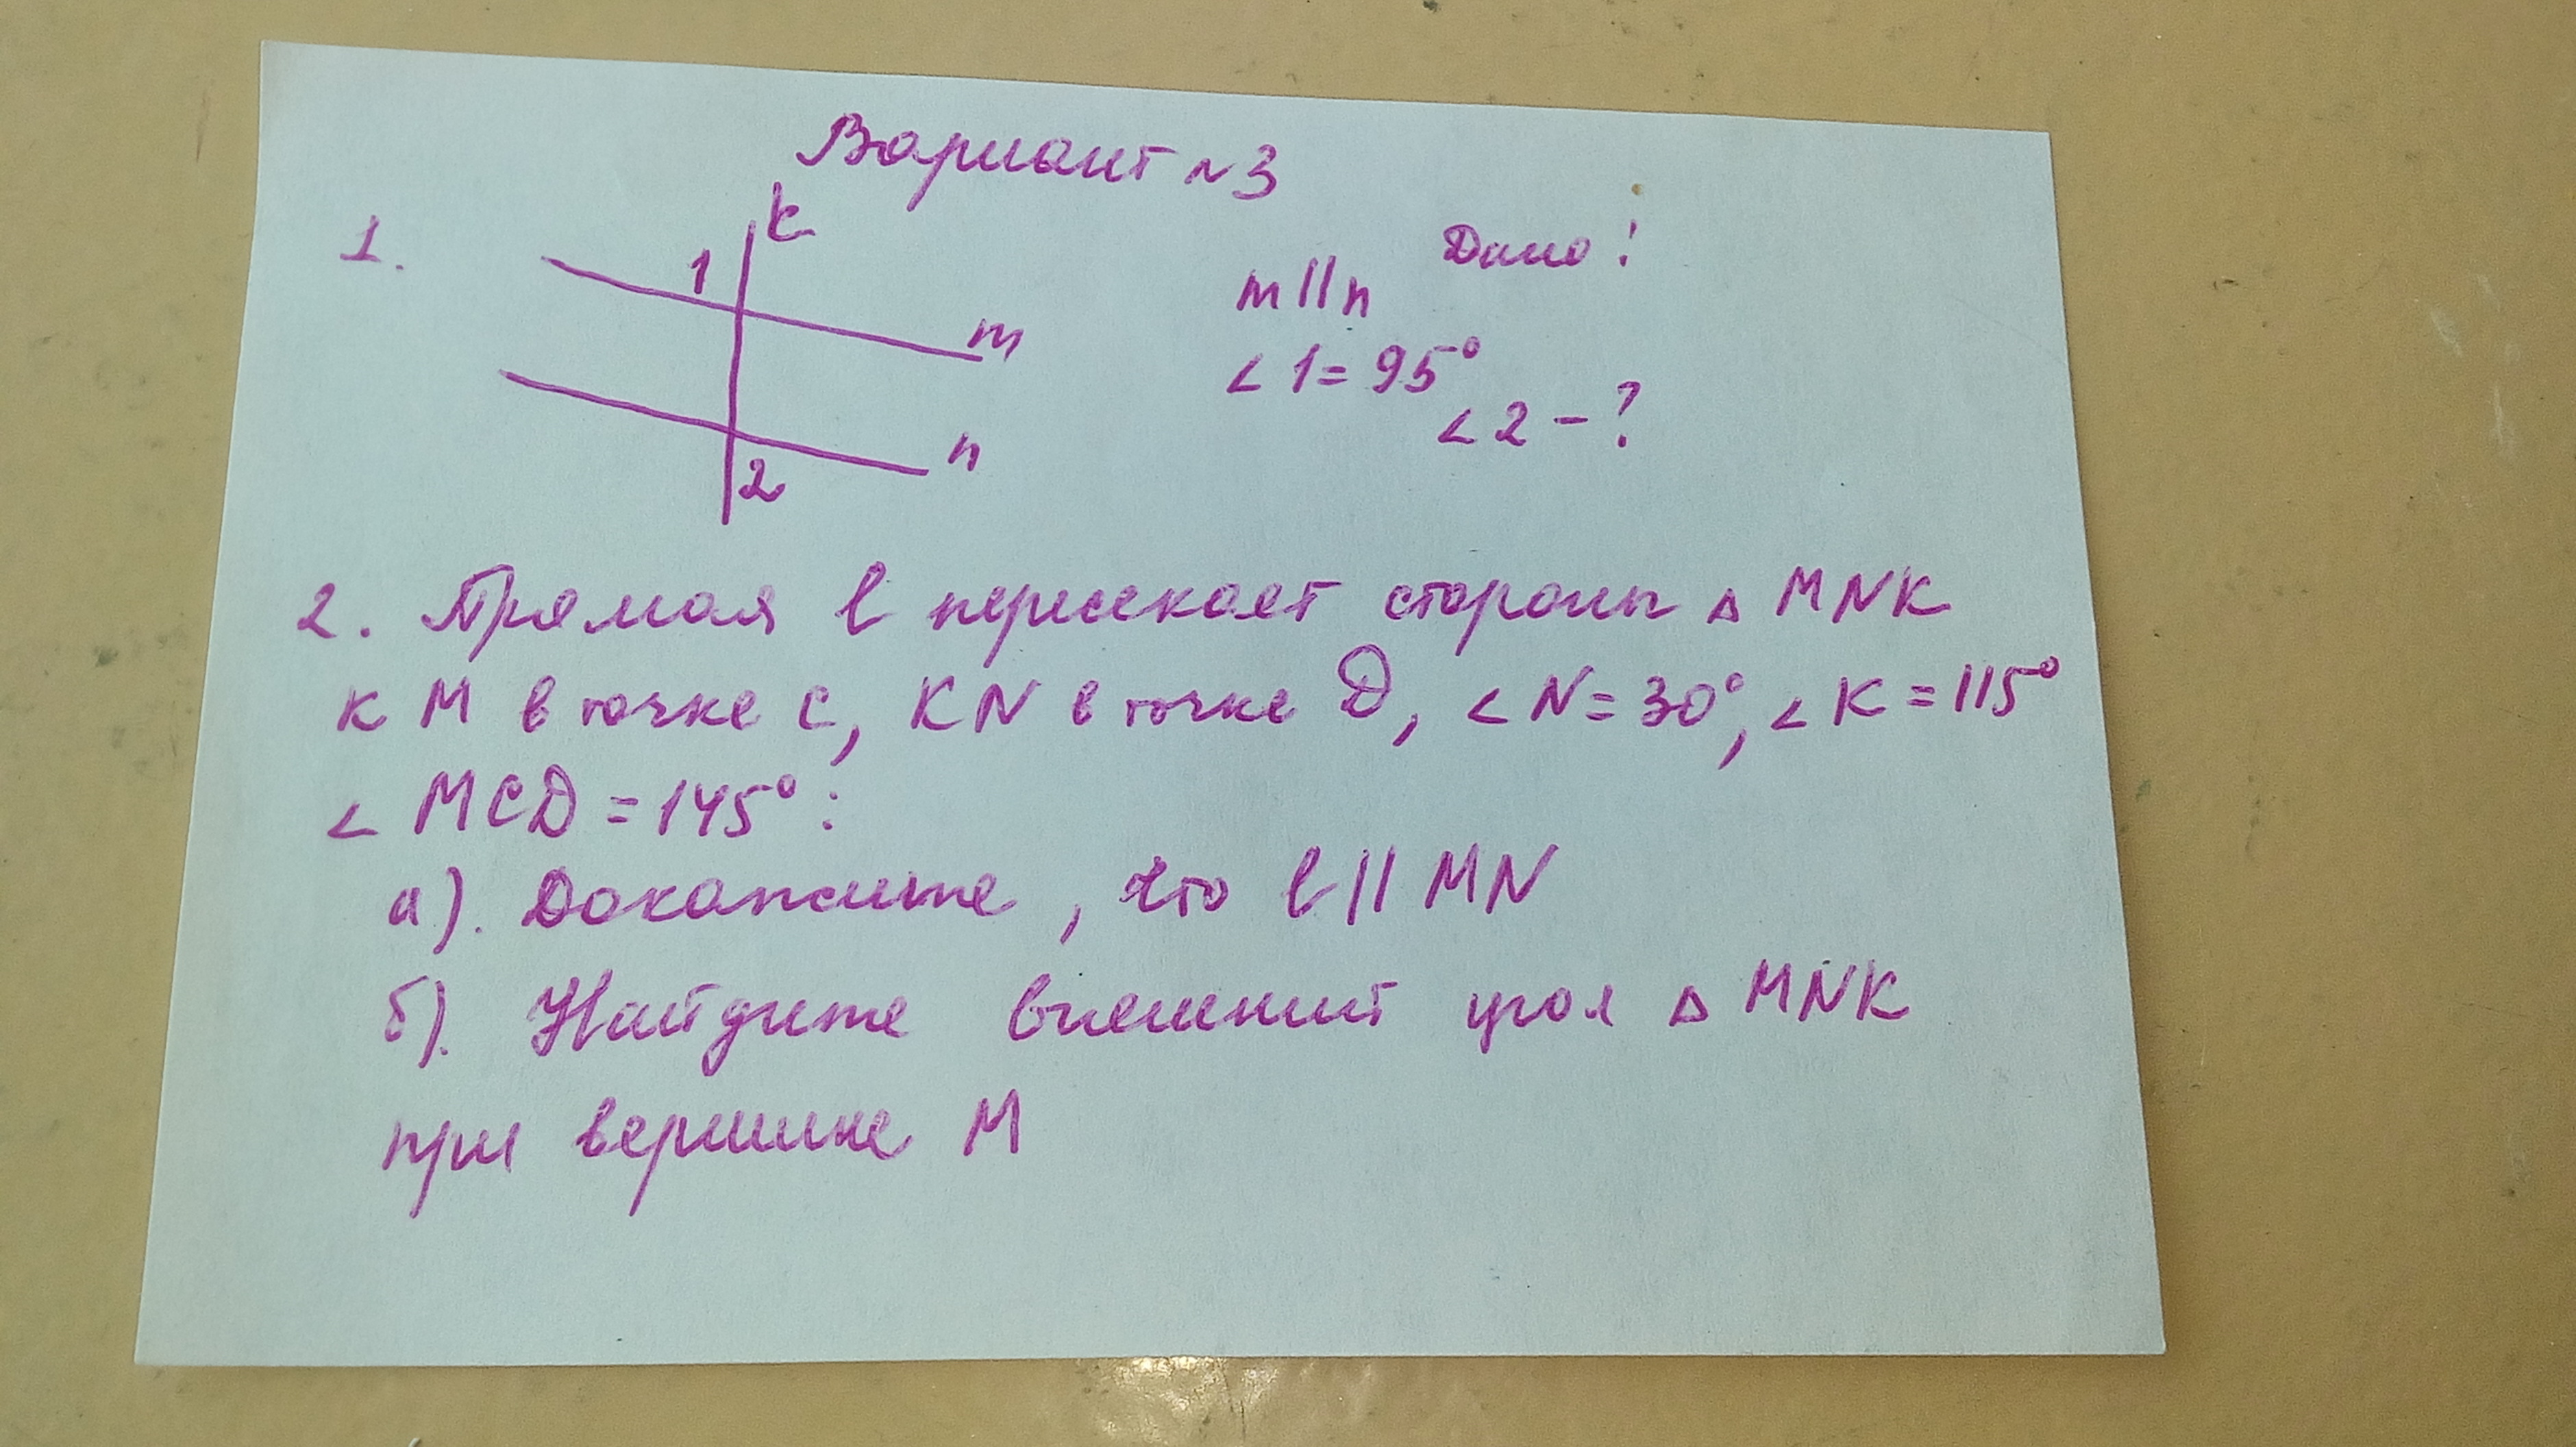 Вариант №3
1.
k
1
m
n
2
Дано:
m||n
∠1=95°
∠2-?
2. Прямая b пересекает стороны △ MNK
KM в точке C, KN в точке D, ∠N=30°, ∠K=115°
∠MCD=145°:
а). Докажите, что b||MN
б). Найдите внешний угол △ MNK
при вершине M